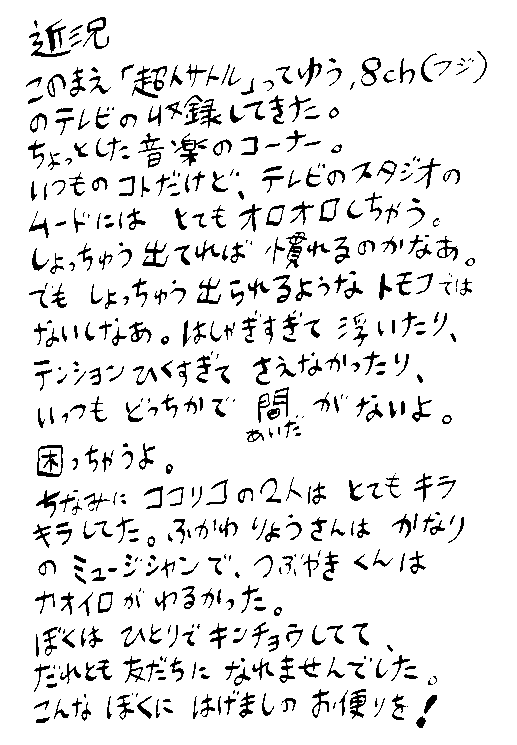 近況
このまえ「超人サトル」ってゆう、8ch(フジ)
のテレビの収録してきた。
ちょっとした音楽のコーナー。
いつものコトだけど、テレビのスタジオの
ムードには とてもオロオロしちゃう。
しょっちゅう出てれば 慣れるのかなあ。
でも しょっちゅう出られるような トモコでは
ないしなあ。はしゃぎすぎて 浮いたり、
テンションひくすぎて さえなかったり、
いっつも どっちかで 間がないよ。
あいだ
困っちゃうよ。
ちなみに ココリコの2人は とてもキラ
キラしてた。ふかわりょうさんは かなり
の ミュージシャンで、つぶやきくんは
カオイロが わるかった。
ぼくは ひとりで キンチョウしてて、
だれとも 友だちに なれませんでした。
こんな ぼくに はげましの お便りを!